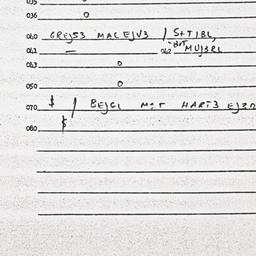 035
036 0
040 GREJS3 MACEJV3 / S+TIBL,
041 — 042 - BOT MUJ3RL
043 0
050 0
070 $ / BEJGL MOT HART3 EJ3D
080 $